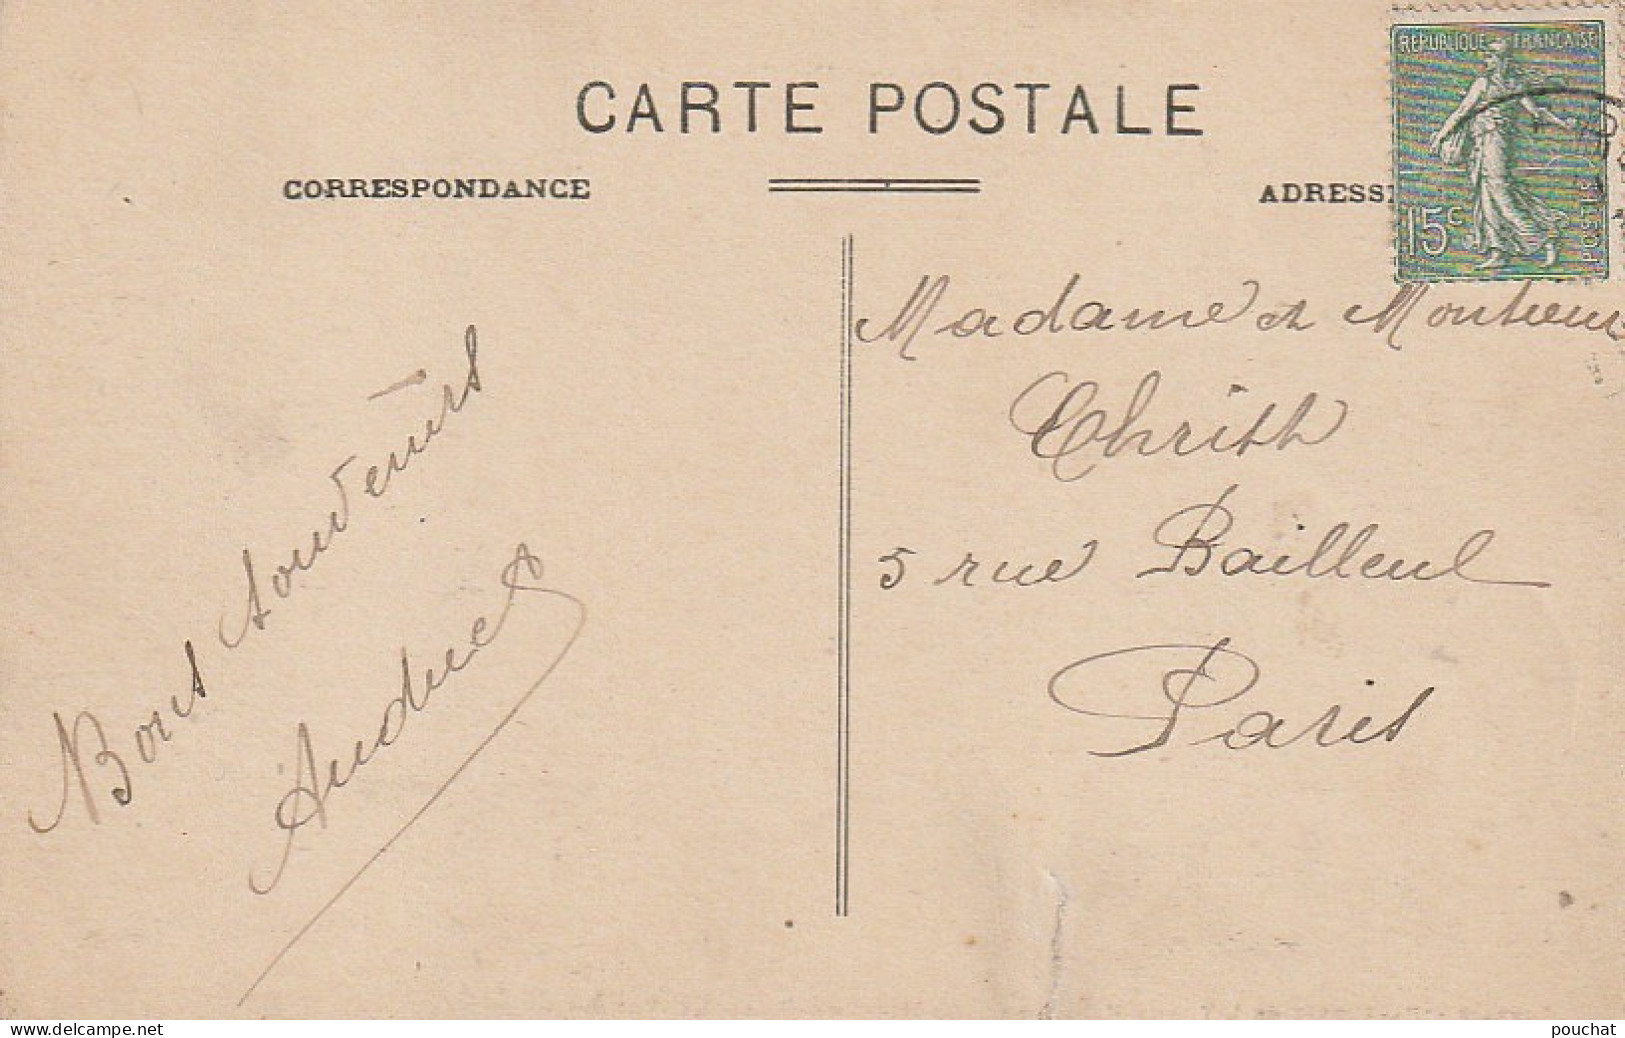 CARTE POSTALE
CORRESPONDANCE
ADRESS
REPUBLIQUE FRANÇAISE
15c
POSTES
Madame et Monsieur
Christh
5 rue Bailleul
Paris
Bons souvenirs
www.delcampe.net
pouchat